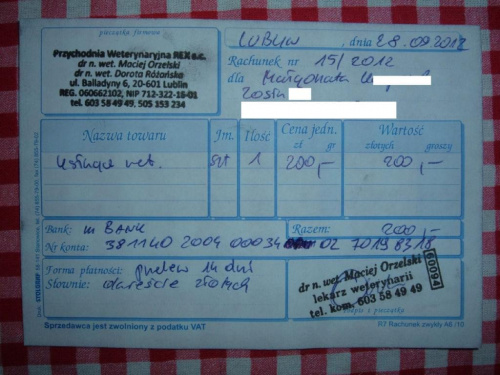 pieczątka firmowa
Przychodnia Weterynaryjna REX s.c.
dr n. wet. Maciej Orzelski
dr n. wet. Dorota Różańska
ul. Balladyny 6, 20-601 Lublin
REG. 060662102, NIP 712-322-16-01
tel. 603 58 49 49, 505 153 234
LUBLIN, dnia 28.09.2012
Rachunek nr 15/2012
dla Małgorzata
Zosia
Nazwa towaru Jm. Ilość Cena jedn. Wartość
zł gr złotych groszy
usługa wet. szt 1 200,- 200,-
Bank: m BANK Razem: 200,-
Nr konta: 381140 2004 00034 02 7019 8318
Forma płatności: przelew 14 dni
Słownie: dwieście złotych
dr n. wet. Maciej Orzelski
lekarz weterynarii
tel. kom. 603 58 49 49
60094
podpis z pieczątką
Sprzedawca jest zwolniony z podatku VAT
R7 Rachunek zwykły A6 /10